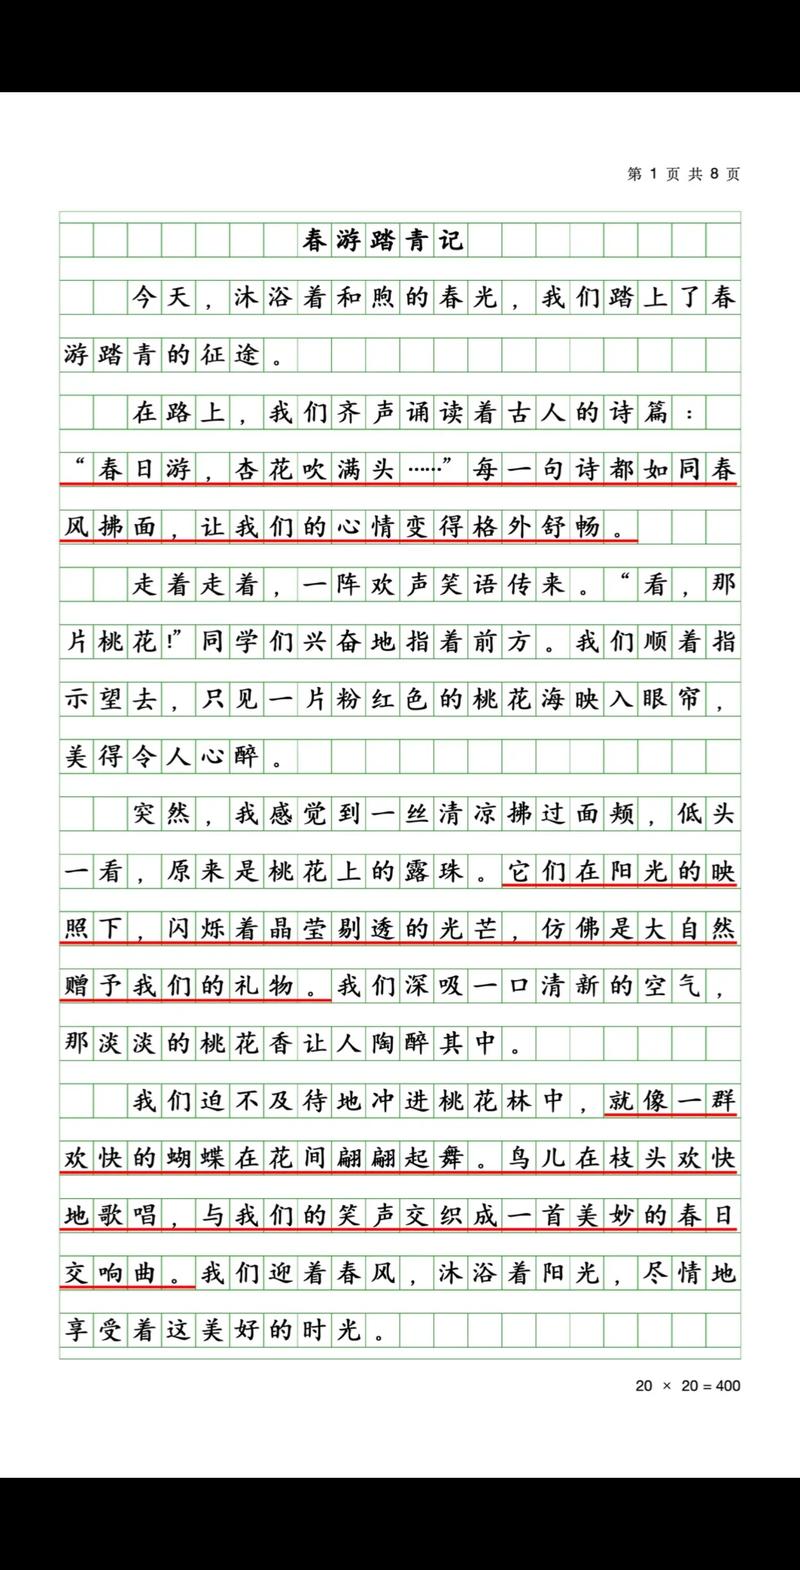 第 1 页 共 8 页
春游踏青记
今天，沐浴着和煦的春光，我们踏上了春
游踏青的征途。
在路上，我们齐声诵读着古人的诗篇：
“春日游，杏花吹满头……”每一句诗都如同春
风拂面，让我们的心情变得格外舒畅。
走着走着，一阵欢声笑语传来。“看，那
片桃花!”同学们兴奋地指着前方。我们顺着指
示望去，只见一片粉红色的桃花海映入眼帘，
美得令人心醉。
突然，我感觉到一丝清凉拂过面颊，低头
一看，原来是桃花上的露珠。它们在阳光的映
照下，闪烁着晶莹剔透的光芒，仿佛是大自然
赠予我们的礼物。我们深吸一口清新的空气，
那淡淡的桃花香让人陶醉其中。
我们迫不及待地冲进桃花林中，就像一群
欢快的蝴蝶在花间翩翩起舞。鸟儿在枝头欢快
地歌唱，与我们的笑声交织成一首美妙的春日
交响曲。我们迎着春风，沐浴着阳光，尽情地
享受着这美好的时光。
20 × 20 = 400